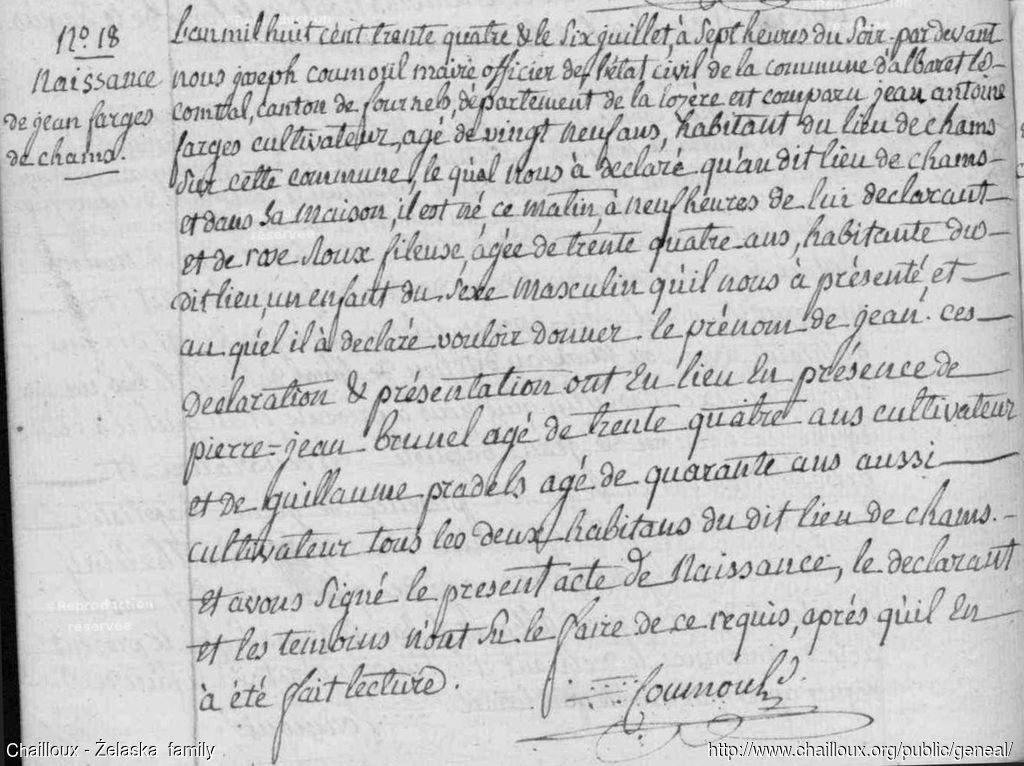 N.º 18
Naissance
de jean farges
de chams.
L'an mil huit cent trente quatre & le six juillet, à sept heures du soir. par devant
nous joseph coumoul maire officier de l'état civil de la commune d'albaret le-
comtal, canton de fournels, département de la lozère est comparu jean antoine
farges cultivateur, agé de vingt neuf ans, habitant du lieu de chams
sur cette commune, le quel nous à declaré qu'au dit lieu de chams-
et dans sa maison, il est né ce matin, à neuf heures de lui declarant
et de rose roux fileuse, agée de trente quatre ans, habitante dus-
dit lieu, un enfant du sexe masculin qu'il nous à présenté et-
au quel il à declaré vouloir donner. le prénom de jean. ces-
declaration & présentation ont eu lieu en présence de
pierre=jean brunel agé de trente quatre ans cultivateur
et de guillaume pradels agé de quarante ans aussi
cultivateur tous les deux habitans du dit lieu de chams.-
et avons signé le present acte de naissance, le declarant
et les temoins n'ont su le faire de ce requis, après qu'il en
à été fait lecture.
Coumoul
© Reproduction
réservée
Chailloux - Żelaska family
http://www.chailloux.org/public/geneal/